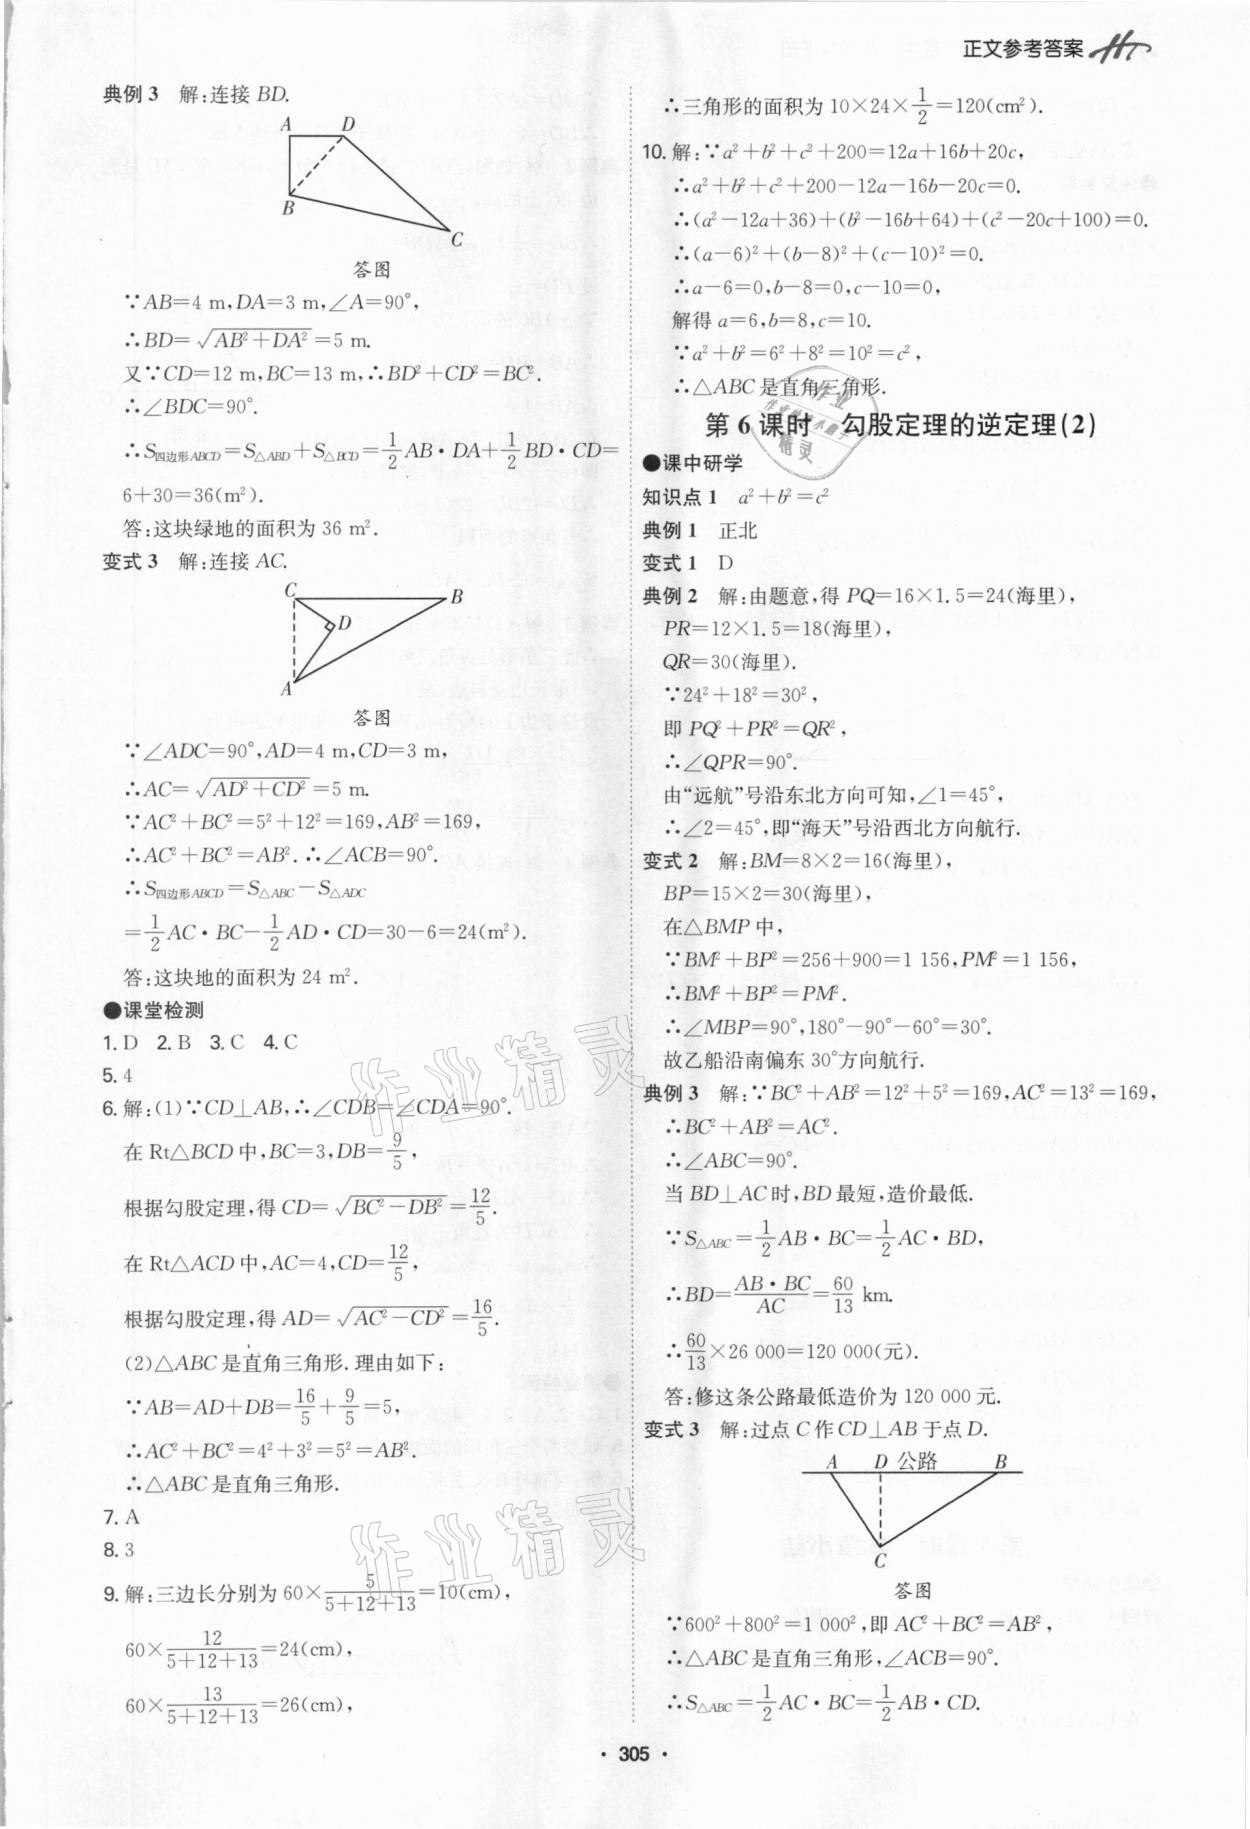 正文参考答案
典例 3 解:连接 BD.
A D
B
C
答图
∵AB=4 m,DA=3 m,∠A=90°,
∴BD=√(AB²+DA²)=5 m.
又∵CD=12 m,BC=13 m,∴BD²+CD²=BC².
∴∠BDC=90°.
∴S四边形ABCD=S△ABD+S△BCD=1/2 AB·DA+1/2 BD·CD=
6+30=36(m²).
答:这块绿地的面积为 36 m².
变式 3 解:连接 AC.
C B
D
A
答图
∵∠ADC=90°,AD=4 m,CD=3 m,
∴AC=√(AD²+CD²)=5 m.
∵AC²+BC²=5²+12²=169,AB²=169,
∴AC²+BC²=AB².∴∠ACB=90°.
∴S四边形ABCD=S△ABC-S△ADC
=1/2 AC·BC-1/2 AD·CD=30-6=24(m²).
答:这块地的面积为 24 m².
●课堂检测
1. D 2. B 3. C 4. C
5. 4
6. 解:(1)∵CD⊥AB,∴∠CDB=∠CDA=90°.
在 Rt△BCD 中,BC=3,DB=9/5,
根据勾股定理,得 CD=√(BC²-DB²)=12/5.
在 Rt△ACD 中,AC=4,CD=12/5,
根据勾股定理,得 AD=√(AC²-CD²)=16/5.
(2)△ABC 是直角三角形.理由如下:
∵AB=AD+DB=16/5+9/5=5,
∴AC²+BC²=4²+3²=5²=AB².
∴△ABC 是直角三角形.
7. A
8. 3
9. 解:三边长分别为 60×5/(5+12+13)=10(cm),
60×12/(5+12+13)=24(cm),
60×13/(5+12+13)=26(cm),
∴三角形的面积为 10×24×1/2=120(cm²).
10. 解:∵a²+b²+c²+200=12a+16b+20c,
∴a²+b²+c²+200-12a-16b-20c=0.
∴(a²-12a+36)+(b²-16b+64)+(c²-20c+100)=0.
∴(a-6)²+(b-8)²+(c-10)²=0.
∴a-6=0,b-8=0,c-10=0,
解得 a=6,b=8,c=10.
∵a²+b²=6²+8²=10²=c²,
∴△ABC 是直角三角形.
第 6 课时 勾股定理的逆定理(2)
●课中研学
知识点 1 a²+b²=c²
典例 1 正北
变式 1 D
典例 2 解:由题意,得 PQ=16×1.5=24(海里),
PR=12×1.5=18(海里),
QR=30(海里).
∵24²+18²=30²,
即 PQ²+PR²=QR²,
∴∠QPR=90°.
由“远航”号沿东北方向可知,∠1=45°,
∴∠2=45°,即“海天”号沿西北方向航行.
变式 2 解:BM=8×2=16(海里),
BP=15×2=30(海里),
在△BMP 中,
∵BM²+BP²=256+900=1 156,PM²=1 156,
∴BM²+BP²=PM².
∴∠MBP=90°,180°-90°-60°=30°.
故乙船沿南偏东 30°方向航行.
典例 3 解:∵BC²+AB²=12²+5²=169,AC²=13²=169,
∴BC²+AB²=AC².
∴∠ABC=90°.
当 BD⊥AC 时,BD 最短,造价最低.
∵S△ABC=1/2 AB·BC=1/2 AC·BD,
∴BD=AB·BC/AC=60/13 km.
∴60/13×26 000=120 000(元).
答:修这条公路最低造价为 120 000 元.
变式 3 解:过点 C 作 CD⊥AB 于点 D.
A D 公路 B
C
答图
∵600²+800²=1 000²,即 AC²+BC²=AB²,
∴△ABC 是直角三角形,∠ACB=90°.
∴S△ABC=1/2 AC·BC=1/2 AB·CD.
· 305 ·
作业精灵
作业精灵